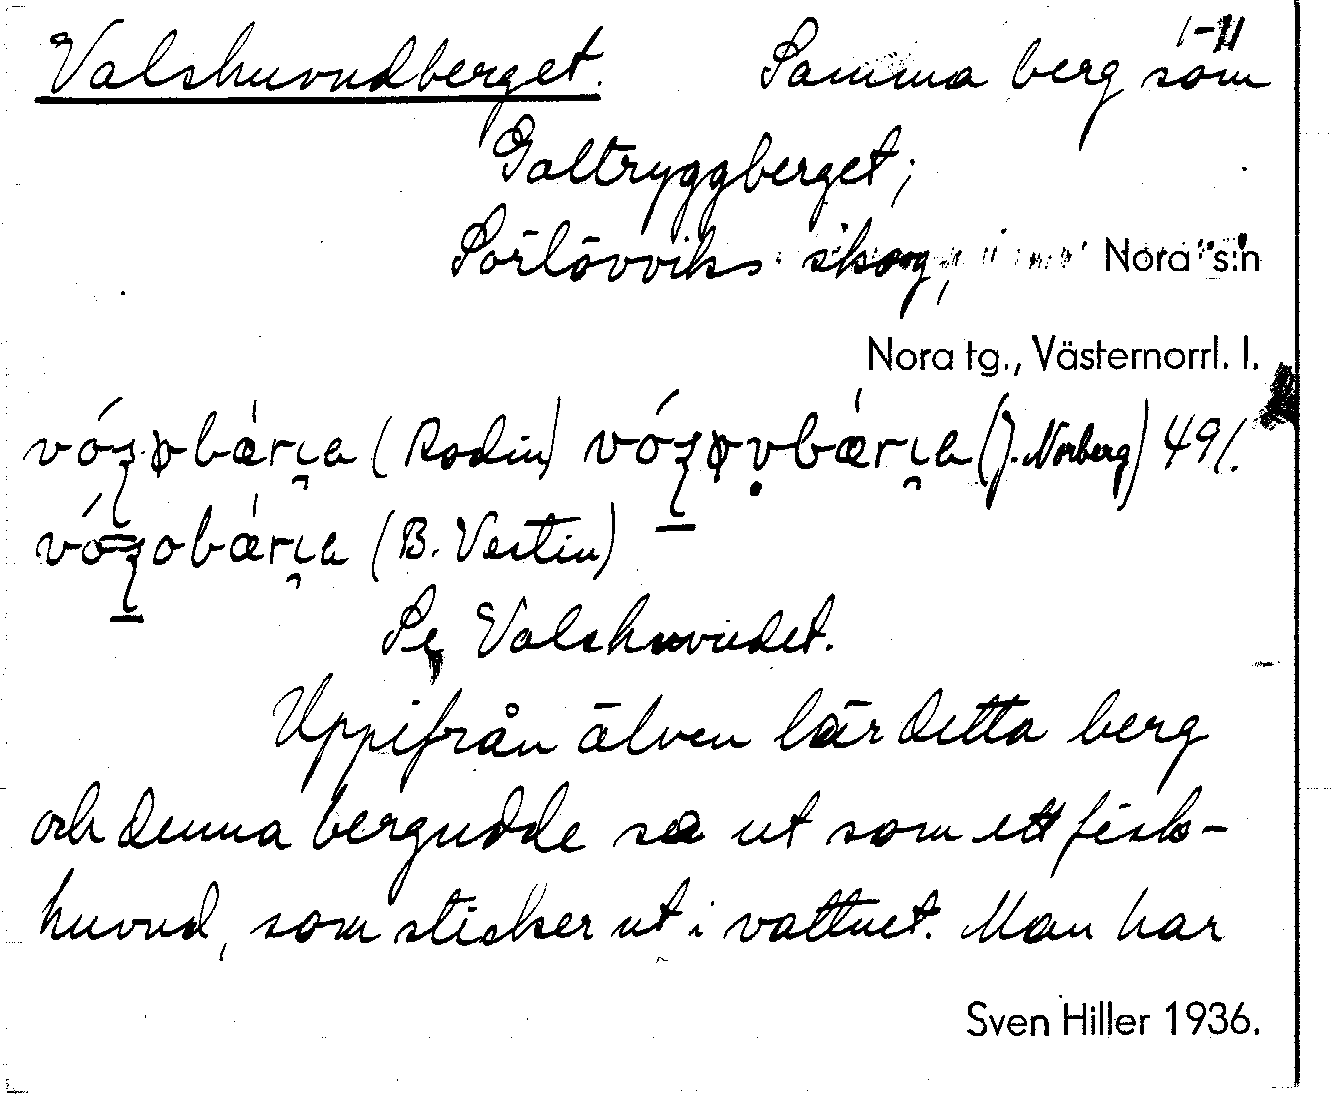 1-11
Valshuvudberget. Samma berg som
Galtryggberget;
Sörlövviks skog, Nora s:n
Nora tg., Västernorrl. l.
(Rodin) (J. Norberg) 491.
(B. Vestin)
Se Valshuvudet.
Uppifrån älven lär detta berg
och denna bergudde se ut som ett fisk-
huvud, som sticker ut i vattnet. Man har
Sven Hiller 1936.